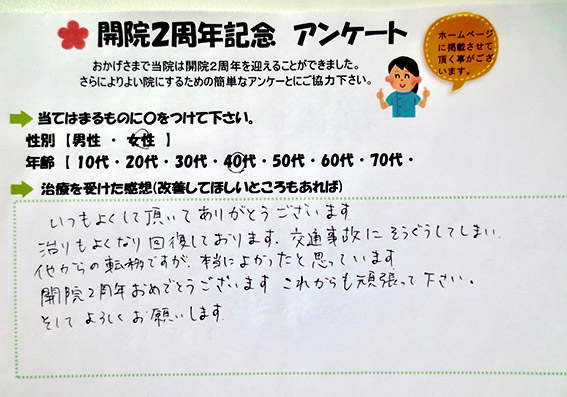 開院2周年記念 アンケート
ホームページ
に掲載させて
頂く事がござ
います。
おかげさまで当院は開院2周年を迎えることができました。
さらによりよい院にするための簡単なアンケーとにご協力下さい。
当てはまるものに〇をつけて下さい。
性別 【男性 ・ 女性 】
年齢 【 10代・20代・30代・40代・50代・60代・70代・
治療を受けた感想(改善してほしいところもあれば)
いつもよくして頂いてありがとうございます
治りもよくなり回復しております。交通事故にそうぐうしてしまい、
他からの転院ですが、本当によかったと思っています
開院2周年おめでとうございます これからも頑張って下さい。
そして よろしくお願いします